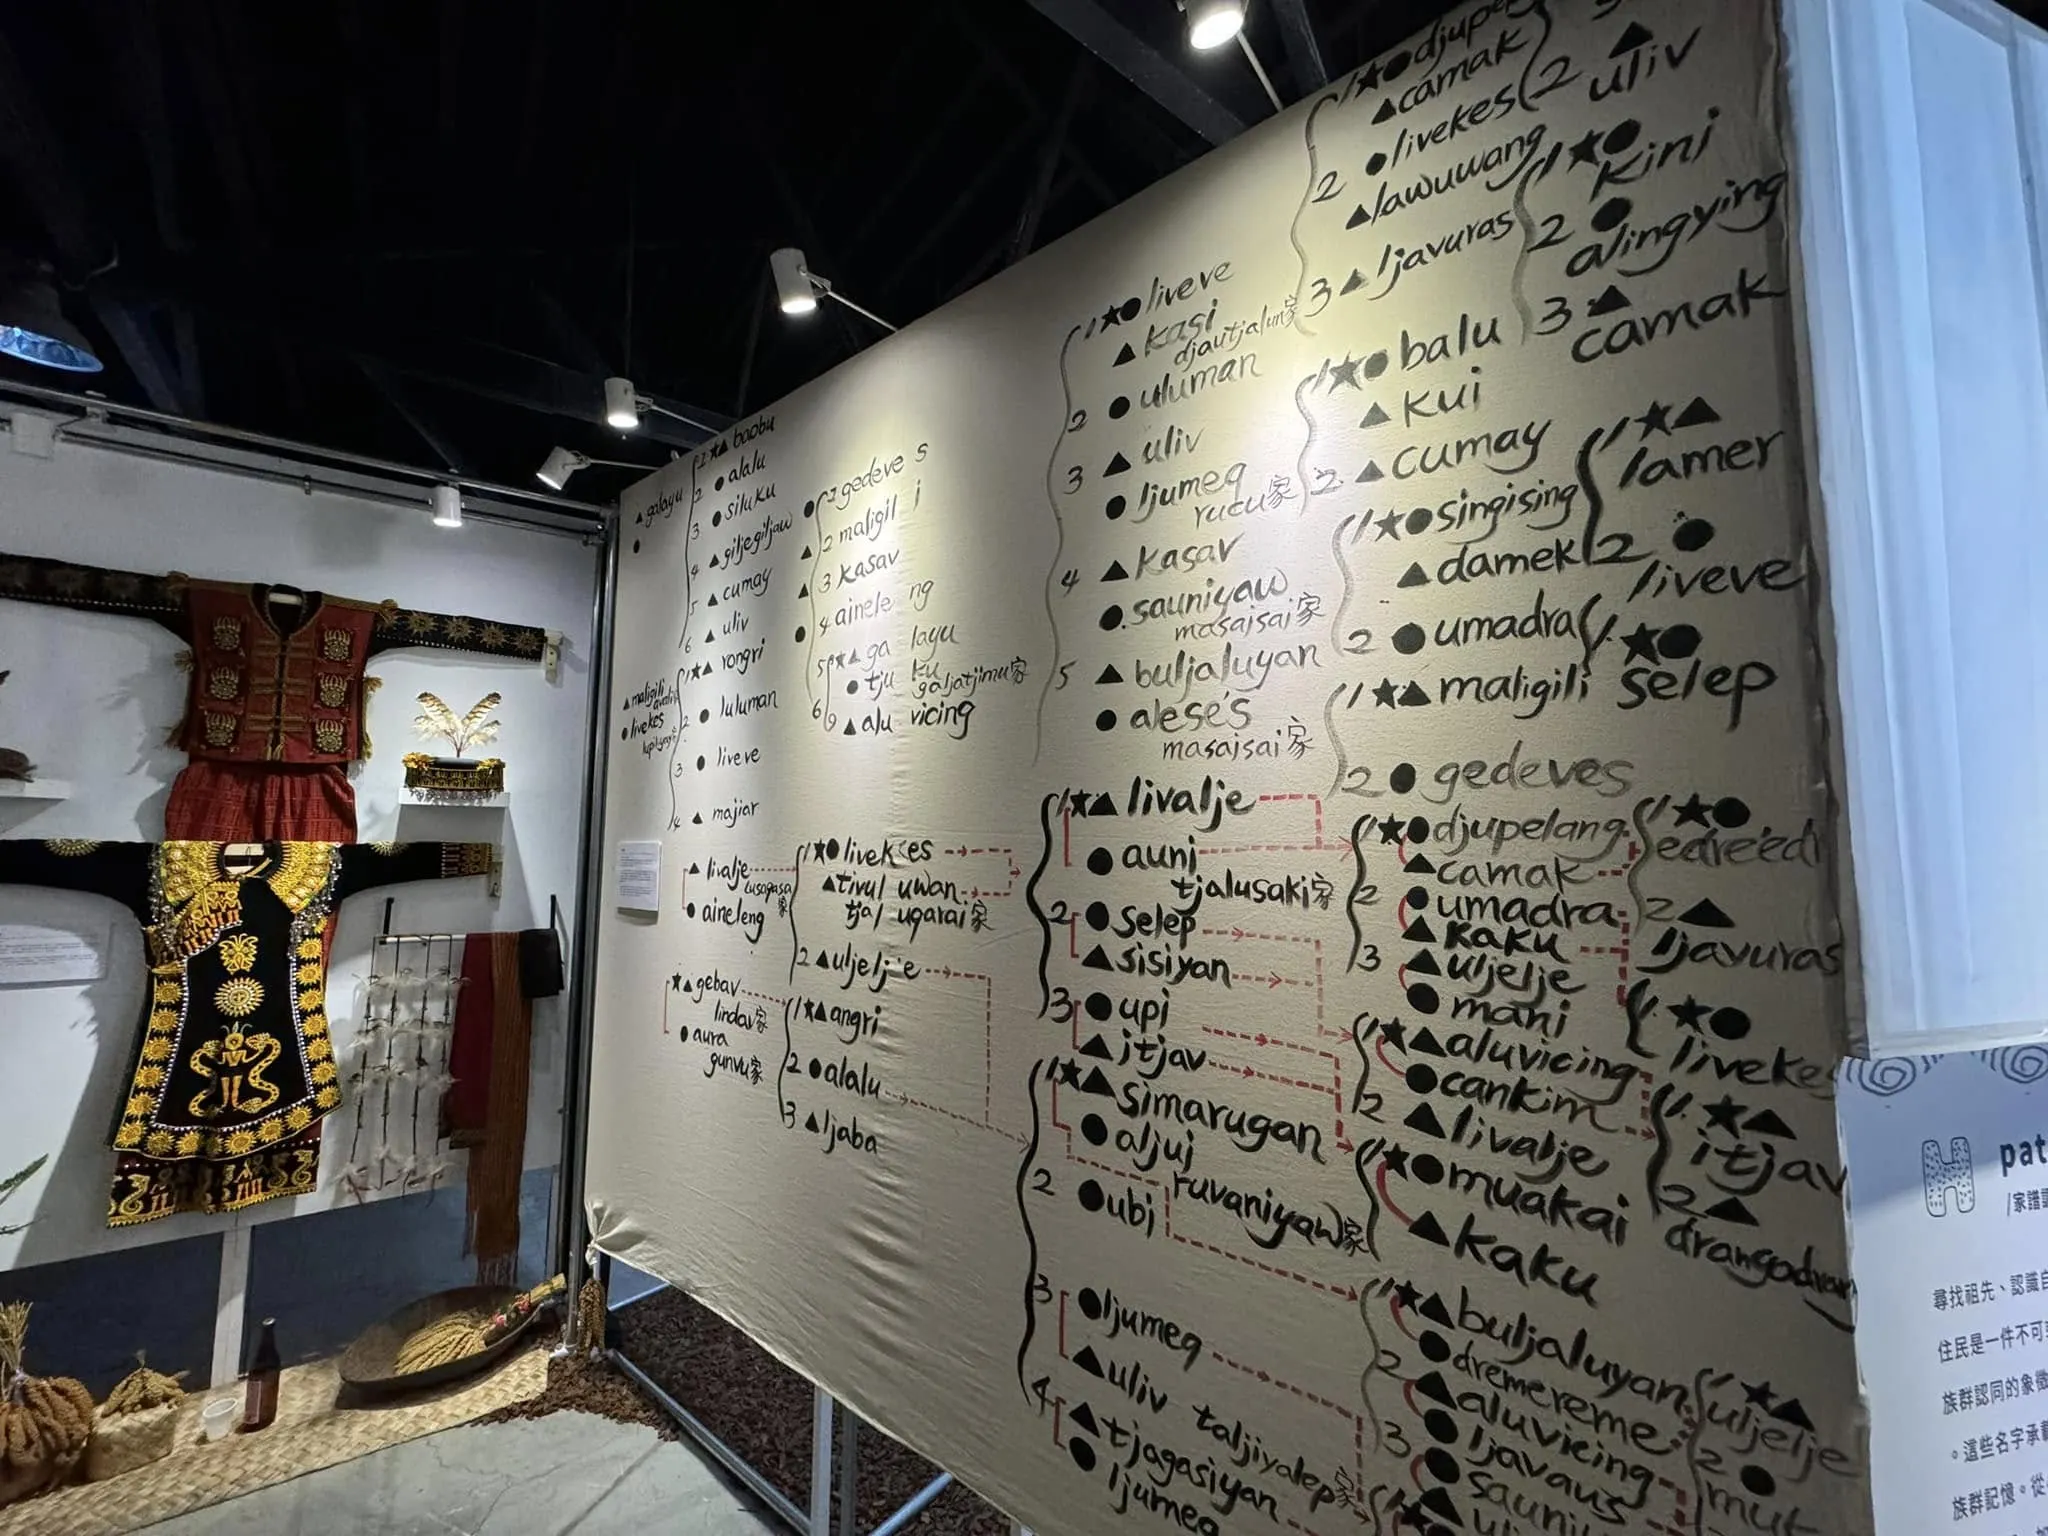 ▲galayu
●
1★▲baobu
2 ●alalu
3 ●siluku
4 ▲giljegiljaw
5 ▲cumay
6 ▲uliv
▲maligili
●livekes
1★▲rongri
2 ●luluman
3 ●liveve
4 ▲majiar
●1 gedeves
▲2 maligili
▲3 kasav
●4 aineleng
5★▲galayu
●tjuku
galjatjimu家
6 ▲aluvicing
▲livalje
tusagasa家
●aineleng
1★●livekes
▲tivuluwan
tjaluqarai家
2▲uljelje
★▲gebav
lindav家
●aura
gunvu家
1★▲angri
2●alalu
3▲ljaba
1★●liveve
▲kasi
djautjalun家
2 ●uluman
3 ▲uliv
●ljumeq
rucu家
4 ▲kasav
●sauniyaw
masajsai家
5 ▲buljaluyan
●alese's
masajsai家
1★▲livalje
●auni
tjalusaki家
2●selep
▲sisiyan
3●upi
▲itjav
1★▲simarugan
●aljuj
ruvaniyaw家
2 ●ubi
3 ●ljumeq
▲uliv taljiyalep家
4▲tjagasiyan
●ljumeq
1★●djupe
▲camak
2 ●livekes
▲lawuwang
3▲ljavuras
1★●balu
▲kui
2▲cumay
1★●singising
▲damek
2 ●umadra
1★▲maligili
2●gedeves
1★●djupelang
▲camak
2 ●umadra
▲kaku
3 ▲uljelje
●mani
1★▲aluvicing
●cankim
2▲livalje
1★●muakai
▲kaku
1★▲buljaluyan
●dremereme
2▲aluvicing
●ljavaus
3●sauni
▲uli
▲
2 uliv
1★●
kini
2 ●
alingying
3▲
camak
1★▲
lamer
2 ●
liveve
1★●
selep
1★●
edreedr
2▲
ljavuras
1★●
livekes
1★▲
itjav
2▲
drangadrang
1★▲
uljelje
2 ●
mut
pat
/家譜
尋找祖先、認識自
住民是一件不可
族群認同的象徵
。這些名字承載
族群記憶。從